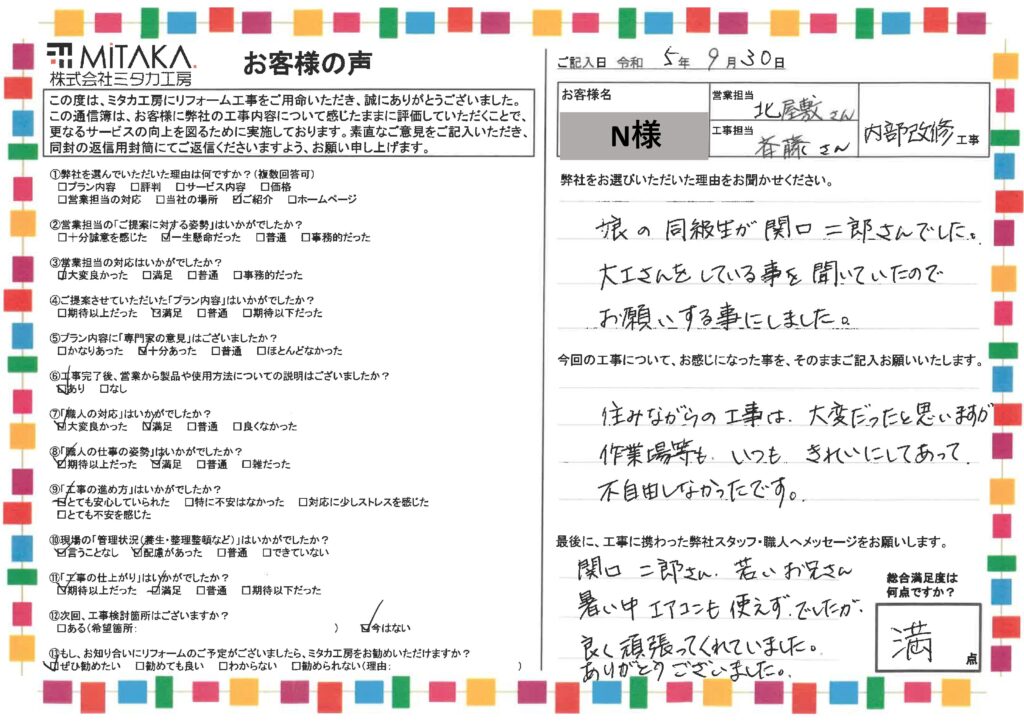 MiTAKA.
株式会社ミタカ工房
お客様の声
この度は、ミタカ工房にリフォーム工事をご用命いただき、誠にありがとうございました。
この通信簿は、お客様に弊社の工事内容について感じたままに評価していただくことで、
更なるサービスの向上を図るために実施しております。素直なご意見をご記入いただき、
同封の返信用封筒にてご返信くださいますよう、お願い申し上げます。
①弊社を選んでいただいた理由は何ですか?(複数回答可)
□プラン内容 □評判 □サービス内容 □価格
□営業担当の対応 □当社の場所 ☑ご紹介 □ホームページ
②営業担当の「ご提案に対する姿勢」はいかがでしたか?
□十分誠意を感じた ☑一生懸命だった □普通 □事務的だった
③営業担当の対応はいかがでしたか?
☑大変良かった □満足 □普通 □事務的だった
④ご提案させていただいた「プラン内容」はいかがでしたか?
□期待以上だった ☑満足 □普通 □期待以下だった
⑤プラン内容に「専門家の意見」はございましたか?
□かなりあった ☑十分あった □普通 □ほとんどなかった
⑥工事完了後、営業から製品や使用方法についての説明はございましたか?
☑あり □なし
⑦「職人の対応」はいかがでしたか?
☑大変良かった ☑満足 □普通 □良くなかった
⑧「職人の仕事の姿勢」はいかがでしたか?
☑期待以上だった ☑満足 □普通 □雑だった
⑨「工事の進め方」はいかがでしたか?
☑とても安心していられた □特に不安はなかった □対応に少しストレスを感じた
□とても不安を感じた
⑩現場の「管理状況(養生・整理整頓など)」はいかがでしたか?
☑言うことなし ☑配慮があった □普通 □できていない
⑪「工事の仕上がり」はいかがでしたか?
☑期待以上だった ☑満足 □普通 □期待以下だった
⑫次回、工事検討箇所はございますか?
□ある(希望箇所: ) ☑今はない
⑬もし、お知り合いにリフォームのご予定がございましたら、ミタカ工房をお勧めいただけますか?
☑ぜひ勧めたい □勧めても良い □わからない □勧められない(理由: )
ご記入日 令和 5年 9月30日
お客様名
N様
営業担当
北屋敷さん
工事担当
斉藤さん
内部改修工事
弊社をお選びいただいた理由をお聞かせください。
娘の同級生が関口二郎さんでした。
大工さんをしている事を聞いていたので
お願いする事にしました。
今回の工事について、お感じになった事を、そのままご記入お願いいたします。
住みながらの工事は、大変だったと思いますが
作業場等も、いつも きれいにしてあって、
不自由しなかったです。
最後に、工事に携わった弊社スタッフ・職人へメッセージをお願いします。
関口 二郎さん、若いお兄さん
暑い中 エアコンも使えず、でしたが、
良く頑張ってくれていました。
ありがとうございました。
総合満足度は
何点ですか?
満点